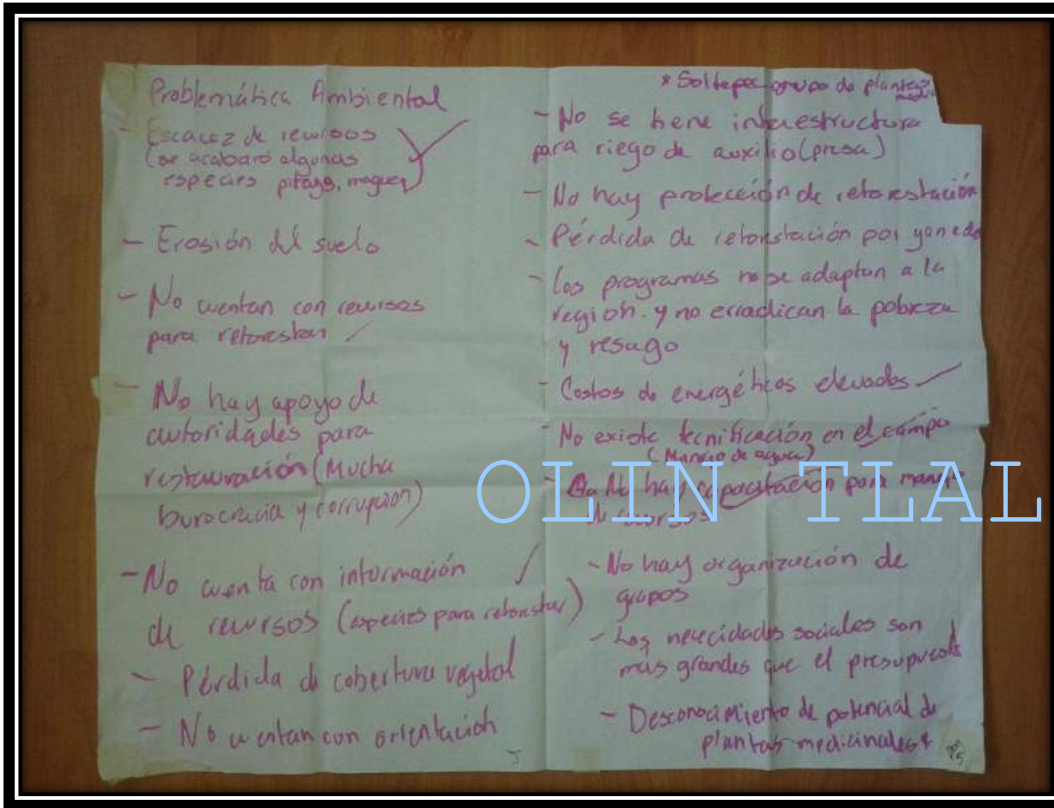 Problemática Ambiental
- Escacez de recursos
(se acabaró algunas
especies pitaya, maguey)
- Erosión del suelo
- No cuentan con recursos
para reforestar
- No hay apoyo de
autoridades para
restauración (Mucha
burocracia y corrupcion)
- No cuenta con información
de recursos (especies para reforestar)
- Pérdida de cobertura vegetal
- No cuentan con orientación
* Soltepec grupo de plantas
- No se tiene infraestructura
para riego de auxilio (presa)
- No hay protección de reforestación
- Pérdida de reforestación por ganado
- Los programas no se adaptan a la
región. y no erradican la pobreza
y resago
- Costos de energéticos elevados
- No existe tecnificación en el campo
(Manejo de agua)
- No hay capacitación para manejo
de recursos
- No hay organización de
grupos
- Las nececidades sociales son
más grandes que el presupuesto
- Desconocimiento de potencial de
plantas medicinales *
OLIN TLAL